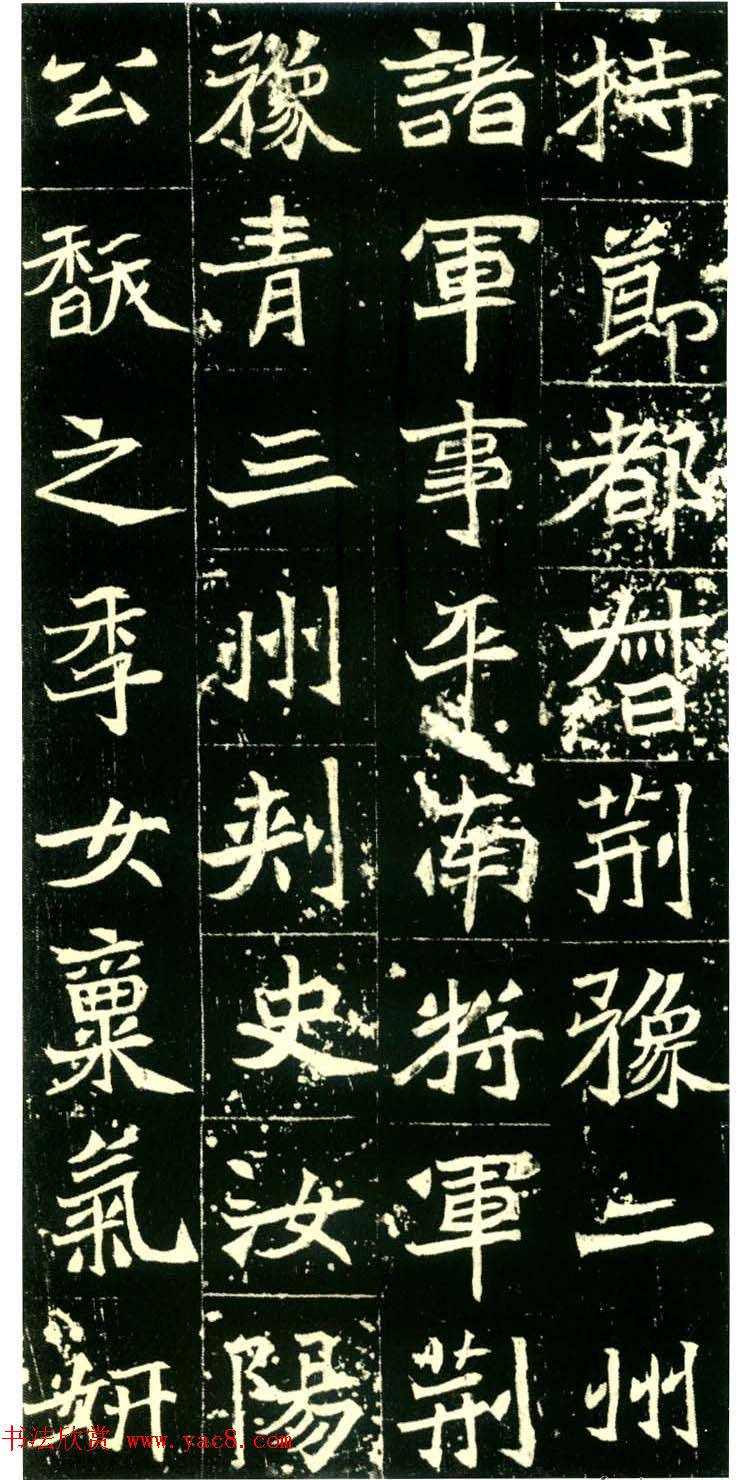 持節都督荊豫二州
諸軍事平南將軍荊
豫青三州刺史汝陽
公馛之季女稟氣妍
书法欣赏 www.yac8.com